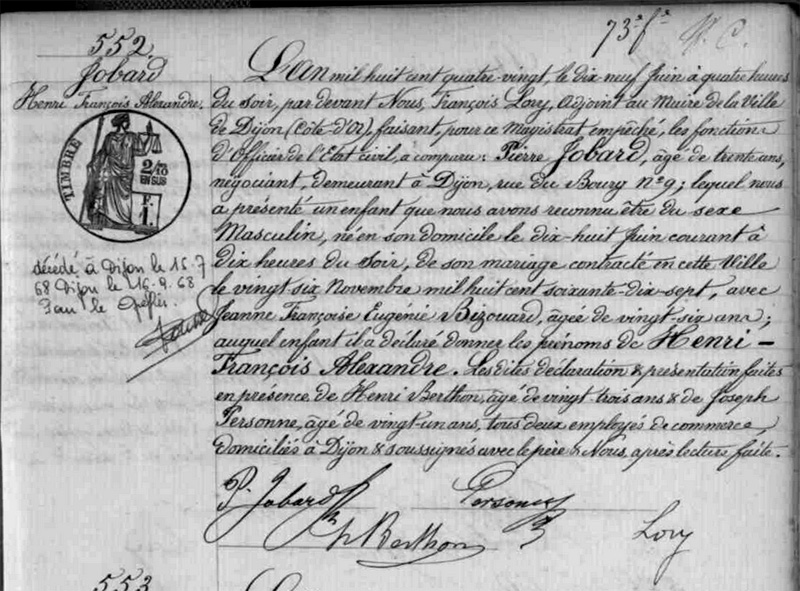 73e f.t N. C.
552
Jobard
Henri François Alexandre.
TIMBRE
2/10
EN SUS
F.
1.
décédé à Dijon le 15.7
68 Dijon le 16.9.68
Pour le Greffier.
L'an mil huit cent quatre-vingt, le dix neuf Juin à quatre heures
du soir, par devant Nous, François Lory, Adjoint au Maire de la Ville
de Dijon (Côte-d'Or), faisant, pour ce Magistrat empêché, les fonctions
d'Officier de l'Etat civil, a comparu: Pierre Jobard, âgé de trente ans,
négociant, demeurant à Dijon, rue du Bourg No 9; lequel nous
a présenté un enfant que nous avons reconnu être du sexe
Masculin, né en son domicile le dix-huit Juin courant à
dix heures du Soir, de son mariage contracté en cette Ville
le vingt six Novembre mil huit cent soixante-dix-sept, avec
Jeanne Françoise Eugénie Bizouard, âgée de vingt-six ans;
auquel enfant il a déclaré donner les prénoms de Henri-
François Alexandre. Les dites déclaration & présentation faites
en présence de Henri Berthon, âgé de vingt-trois ans & de Joseph
Personne, âgé de vingt-un ans, tous deux employés de commerce,
domiciliés à Dijon & soussignés avec le père & Nous, après lecture faite.
P. Jobard
Personne
h Berthon
Lory
553